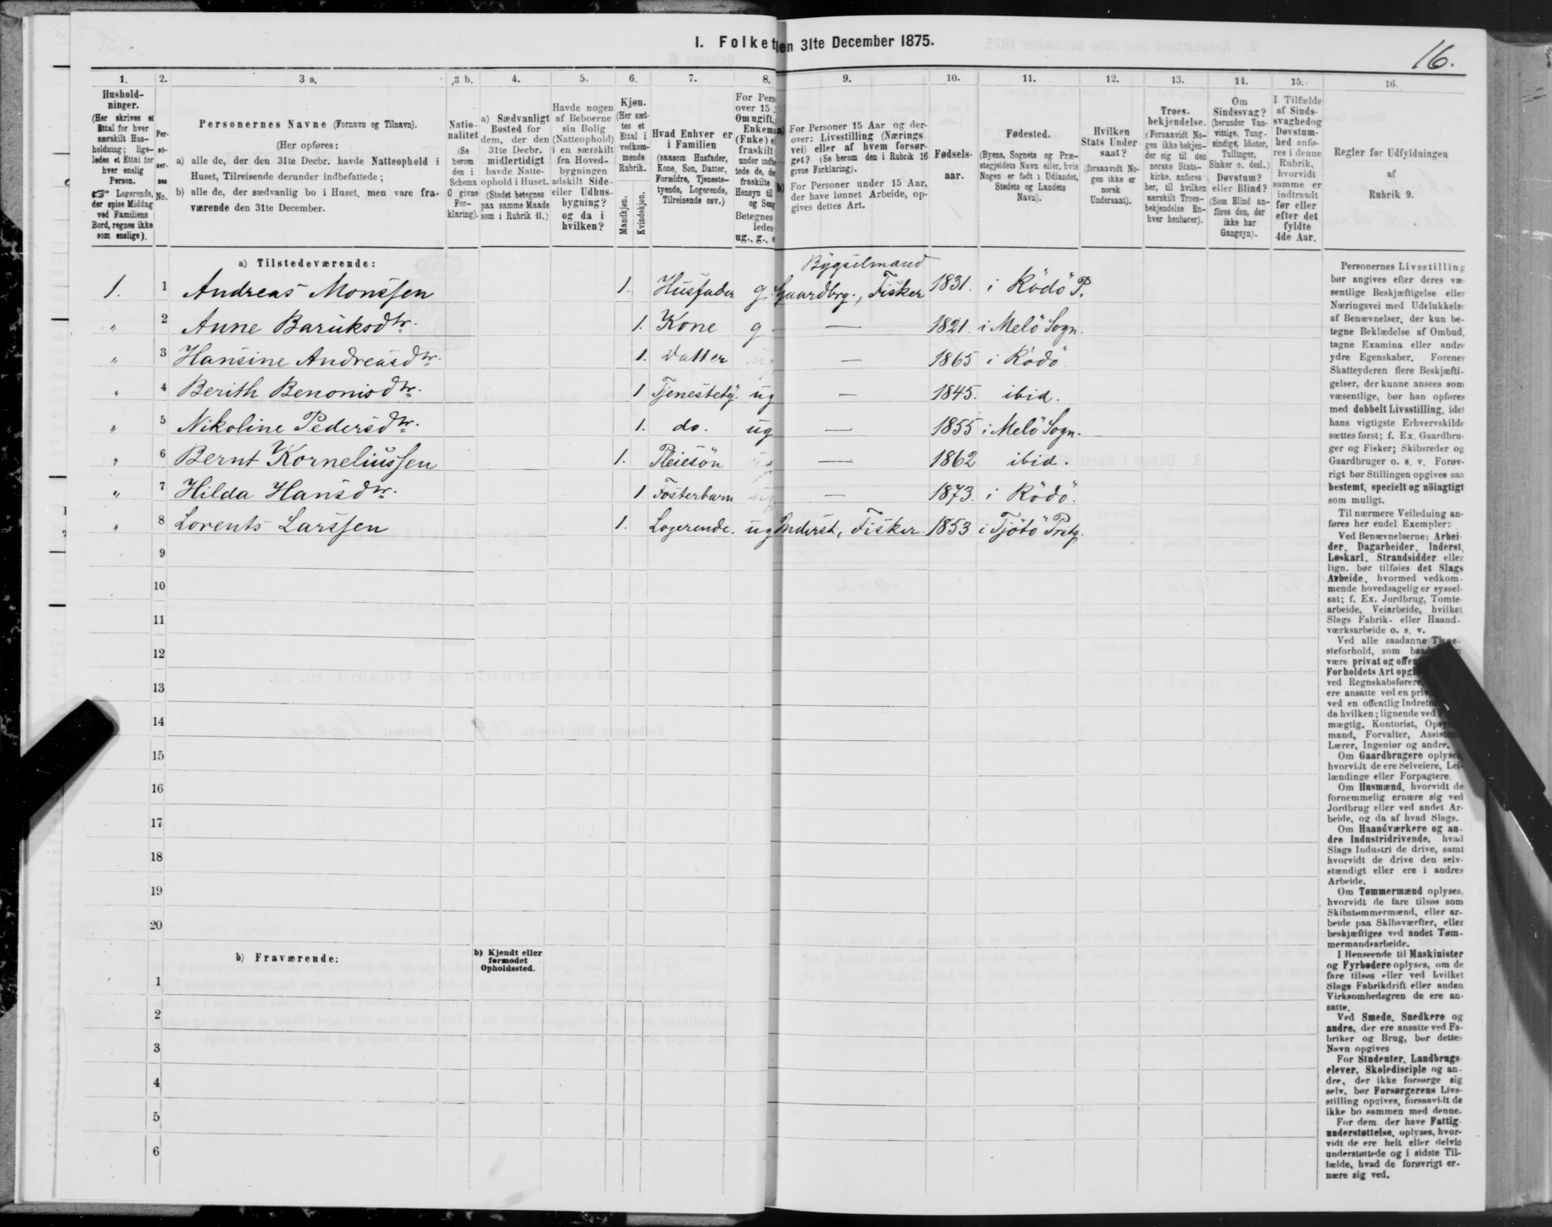 I. Folket en 31te December 1875.
16.
1. 2. 3 a. 3 b. 4. 5. 6. 7. 8. 9. 10. 11. 12. 13. 14. 15. 16.
Hushold-
ninger.
(Her skrives et
Ettal for hver
særskilt Hus-
holdning; lige-
ledes et Ettal for
hver enslig
Person.
Logerende,
der spise Middag
ved Familiens
Bord, regnes ikke
som enslige).
Per-
so-
ner-
nes
No.
Personernes Navne (Fornavn og Tilnavn).
(Her opføres:
a) alle de, der den 31te Decbr. havde Natteophold i
Huset, Tilreisende derunder indbefattede;
b) alle de, der sædvanlig bo i Huset, men vare fra-
værende den 31te December.
Natio-
nalitet
(Se
herom
den i
Schema
givne
For-
klaring).
a) Sædvanligt
Bosted for
dem, der den
31te Decbr.
midlertidigt
havde Natte-
ophold i Huset.
(Stedet betegnes
paa samme Maade
som i Rubrik 11.)
Havde nogen
af Beboerne
sin Bolig
(Natteophold)
i en særskilt
fra Hoved-
bygningen
adskilt Side-
eller Udhus-
bygning?
og da i
hvilken?
Kjøn.
(Her sæt-
tes et
Ettal i
vedkom-
mende
Rubrik.
Mandkjøn.
Kvindekjøn.
Hvad Enhver er
i Familien
(saasom Husfader,
Kone, Søn, Datter,
Forældre, Tjeneste-
tyende, Logerende,
Tilreisende osv.)
For Pers
over 15
Om ugift,
Enkem
(Enke) e
fraskilt
under indte
tede de, de
fraskilte
Hensyn til
og Seng
Betegnes
ledes
ug., g., e
For Personer 15 Aar og der-
over: Livsstilling (Nærings
vei) eller af hvem forsør-
get? (Se herom den i Rubrik 16
givne Forklaring).
For Personer under 15 Aar,
der have lønnet Arbeide, op-
gives dettes Art.
Fødsels-
aar.
Fødested.
(Byens, Sognets og Præ-
stegjeldets Navn eller, hvis
Nogen er født i Udlandet,
Stedets og Landets
Navn).
Hvilken
Stats Under-
saat?
(forsaavidt No-
gen ikke er
norsk
Undersaat).
Troes-
bekjendelse.
(Forsaavidt No-
gen ikke bekjen-
der sig til den
norske Stats-
kirke, anføres
her, til hvilken
særskilt Troes-
bekjendelse En-
hver henhører).
Om
Sindssvag?
(herunder Van-
vittige, Tung-
sindige, Idioter,
Tullinger,
Sinker o. desl.)
Døvstum?
eller Blind?
(Som Blind an-
føres den, der
ikke har
Gangsyn).
I Tilfælde
af Sinds-
svaghed og
Døvstum-
hed anfø-
res i denne
Rubrik,
hvorvidt
samme er
indtraadt
før eller
efter det
fyldte
4de Aar.
Regler for Udfyldningen
af
Rubrik 9.
a) Tilstedeværende:
Bygselmand
1. 1 Andreas Monssen 1. Husfader g. Gaardbrg., Fisker 1831. i Rödö P.
" 2 Anne Baruksdtr. 1. Kone g — 1821. i Melö Sogn.
" 3 Hansine Andreasdtr. 1. Datter — 1865 i Rödö.
" 4 Berith Benonisdtr. 1 Tjenestety. ug — 1845. ibid.
" 5 Nikoline Pedersdtr. 1. do. ug — 1855 i Melö Sogn.
" 6 Bernt Korneliussen 1. Pleiesön — 1862 ibid.
" 7 Hilda Hansdtr. 1. Fosterbarn — 1873. i Rödö.
" 8 Lorents Larssen 1. Logerende. ug Inderst, Fisker 1853. i Tjötö Prstg.
9
10
11
12
13
14
15
16
17
18
19
20
b) Fraværende:
b) Kjendt eller
formodet
Opholdssted.
1
2
3
4
5
6
Personernes Livsstilling
bør angives efter deres væ-
sentlige Beskjæftigelse eller
Næringsvei med Udelukkelse
af Benævnelser, der kun be-
tegne Beklædelse af Ombud,
tagne Examina eller andre
ydre Egenskaber. Forener
Skatteyderen flere Beskjæfti-
gelser, der kunne ansees som
væsentlige, bør han opføres
med dobbelt Livsstilling, idet
hans vigtigste Erhvervskilde
sættes først; f. Ex. Gaardbru-
ger og Fisker; Skibsreder og
Gaardbruger o. s. v. Forøv-
rigt bør Stillingen opgives saa
bestemt, specielt og nøiagtigt
som muligt.
Til nærmere Veiledning an-
føres her endel Exempler:
Ved Benævnelserne: Arbei-
der, Dagarbeider, Inderst,
Løskarl, Strandsidder eller
lign. bør tilføies det Slags
Arbeide, hvormed vedkom-
mende hovedsagelig er syssel-
sat; f. Ex. Jordbrug, Tomte-
arbeide, Veiarbeide, hvilket
Slags Fabrik- eller Haand-
værksarbeide o. s. v.
Ved alle saadanne Tjene-
steforhold, som
være privat og
Forholdets Art
ved Regnskabsførere,
ere ansatte ved en
ved en offentlig
da hvilken; lignende ved
mægtig, Kontorist,
mand, Forvalter,
Lærer, Ingeniør og andre.
Om Gaardbrugere oplyses,
hvorvidt de ere Selveiere, Lei-
lændinge eller Forpagtere.
Om Husmænd, hvorvidt de
fornemmelig ernære sig ved
Jordbrug eller ved andet Ar-
beide, og da af hvad Slags.
Om Haandværkere og an-
dre Industridrivende, hvad
Slags Industri de drive, samt
hvorvidt de drive den selv-
stændigt eller ere i andres
Arbeide.
Om Tømmermænd oplyses,
hvorvidt de fare tilsøs som
Skibstømmermænd, eller ar-
beide paa Skibsværfter, eller
beskjæftiges ved andet Tøm-
mermandsarbeide.
I Henseende til Maskinister
og Fyrbødere oplyses, om de
fare tilsøs eller ved hvilket
Slags Fabrikdrift eller anden
Virksomhedsgren de ere an-
satte.
Ved Smede, Snedkere og
andre, der ere ansatte ved Fa-
briker og Brug, bør dettes
Navn opgives
For Studenter, Landbrugs
elever, Skoledisciple og an-
dre, der ikke forsørge sig
selv, bør Forsørgerens Livs-
stilling opgives, forsaavidt de
ikke bo sammen med denne.
For dem, der have Fattig-
understøttelse, oplyses, hvor-
vidt de ere helt eller delvis
understøttede og i sidste Til-
fælde, hvad de forøvrigt er-
nære sig ved.